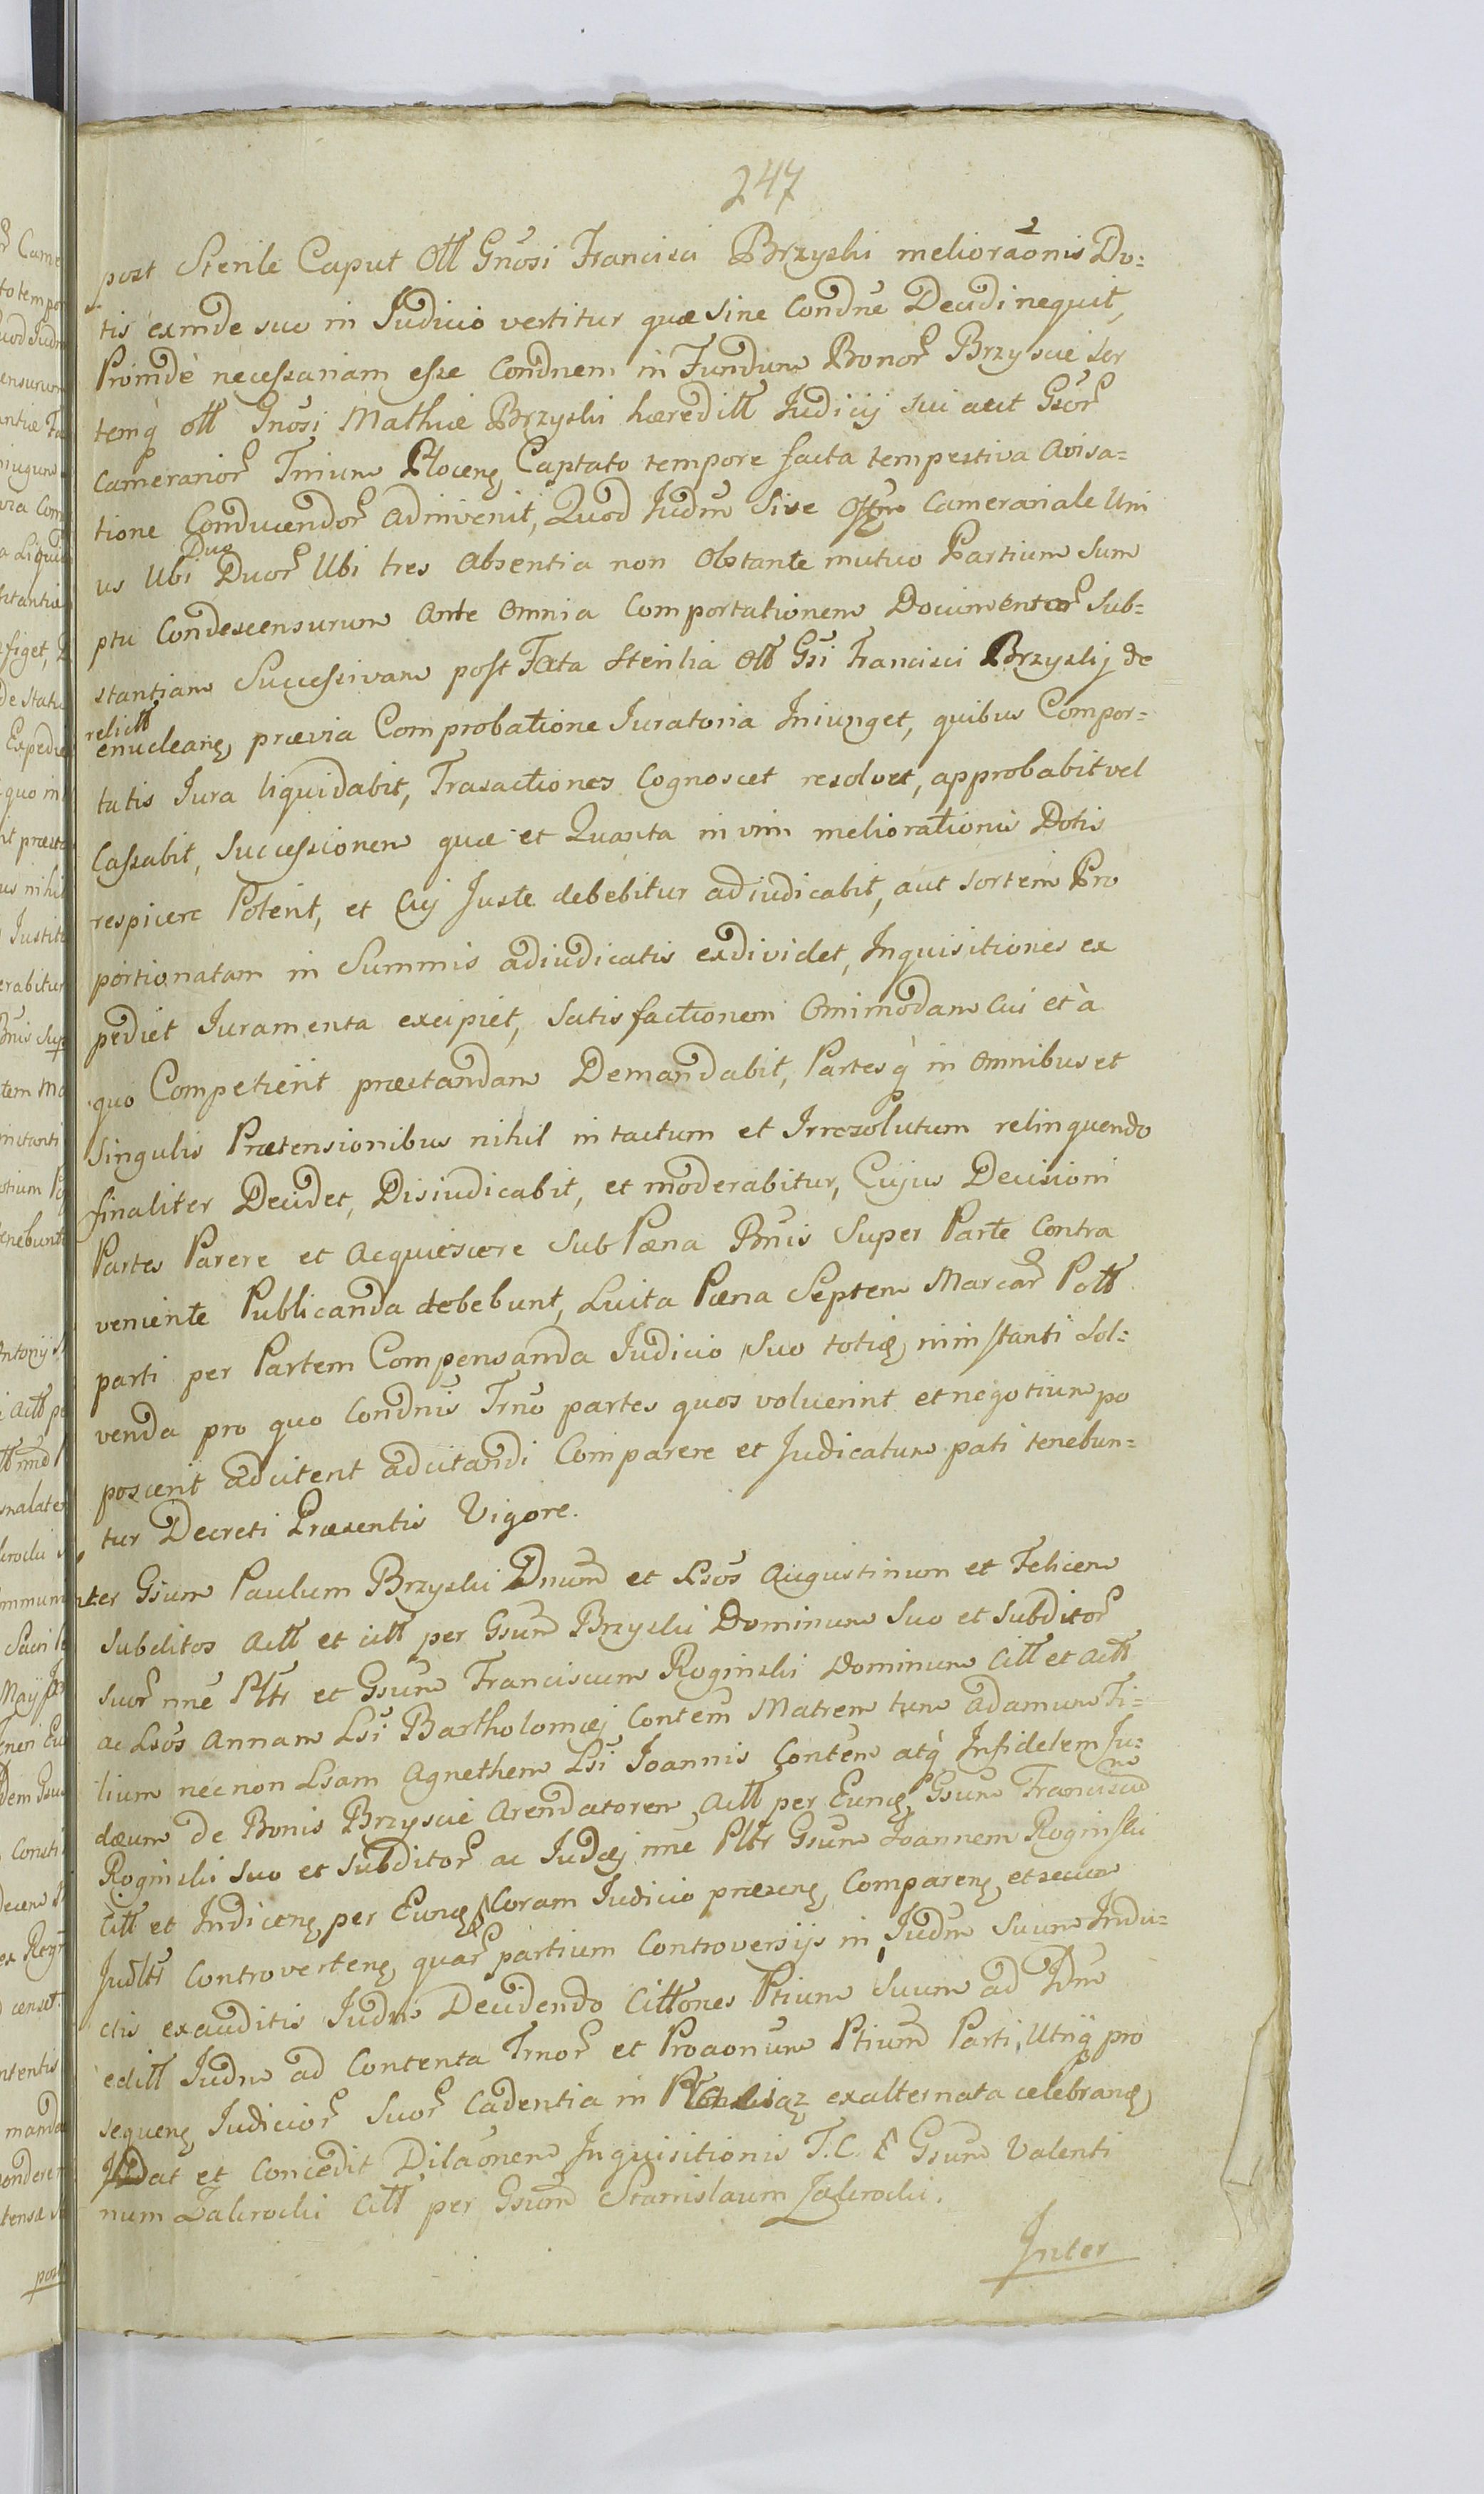 247
post Sterile Caput Olł Gnosi Francisci Brzyski meliorãonis Do=
tis exinde suo in Judicio vertitur quæ sine Condne Decidi nequit,
Proinde necessariam esse Condnem in Fundum Bonor Brzyscie Sor
temq́ olł Gnosi Mathiæ Brzyski hæredilł Judicij sui aut Gsor
Camerarior Trium Captato tempore facta tempestiva Avisa=
tione Conducendor adinvenit, Quod Judm Sive Camerariale Uni
us Ubi Duo Duor Ubi tres Absentia non Obstante mutuo Partium Sum
ptu Condescensurum Ante Omnia Comportationem Documentor Sub=
stantiam Successivam post Fata Sterilia Olł Gsi Francisci Brzyskij de
relictł
enucleang prævia Comprobatione Juratoria Iniunget, quibus Compor=
tatis Jura liquidabit, Trasactiones Cognoscet resolvet, approbabit vel
Cassabit, Successionem quæ et Quanta in vim meliorationis Dotis
respicere Poterit, et Cuj Juste debebitur adiudicabit, aut sortem Pro
portionatam in Summis adiudicatis exdividet, Inquisitiones ex
pediet Juramenta excipiet, Satisfactionem Omimodam Cui et à
quo Competierit præstandam Demandabit, Partesq́ in Omnibus et
Singulis Prætensionibus nihil intactum et Irresolutum relinquendo
finaliter Decidet, Disiudicabit, et moderabitur, Cujus Decisioni
Partes Parere et Acquiescere Sub Pæna Bnis Super Parte Contra
veniente Publicanda debebunt, Luita Pæna Septem Marcar Polł
parti per Partem Compensanda Judicio Suo totiq ninstanti Sol=
venda pro quo Condnis Trno partes quos voluerint et negotium po
poscerit adcitent adcitandi Comparere et Judicatum pati tenebun=
tur Decreti Præsentis Vigore.
ter Gsum Paulum Brzyski Dnum et Lsos Augustinum et Felicem
Subditos Actł et citł per Gsum Brzyski Dominum Suo et Subditor
Suor nne Pltr et Gsum Franciscum Roginski Dominum Citł et Actł
ac Lsos Annam Lsi Bartholomæj Contem Matrem tum Adamum Fi=
lium necnon Lsam Agnethem Lsi Joannis Contem atq́ Infidelem Ju=
dæum de Bonis Brzyscie Arendatorem Actł per Eunq Gsum Franciscum
Roginski Suo et Subditor ac Judæj nne Pltr Gsum Joannem Roginski
Citł et Indiceng per Eunq Coram Judicio præseng Compareng et secum
Judltr Controverteng quar partium Controversijs in Judm Suum Indu=
ctis exauditis Judm Decidendo Citłones Ptium Suum ad Idm
editł Judm ad Contenta Trnor et Proaonum Ptium Parti Utriq́ pro
sequeng Judicior Suor Cadentia in exalternata celebrang
Dat et Concedit Dilãonem Inquisitionis T.C. Gsum Valenti
num Zakrocki Citł per Gsum Stanislaum Zakrocki.
Inter